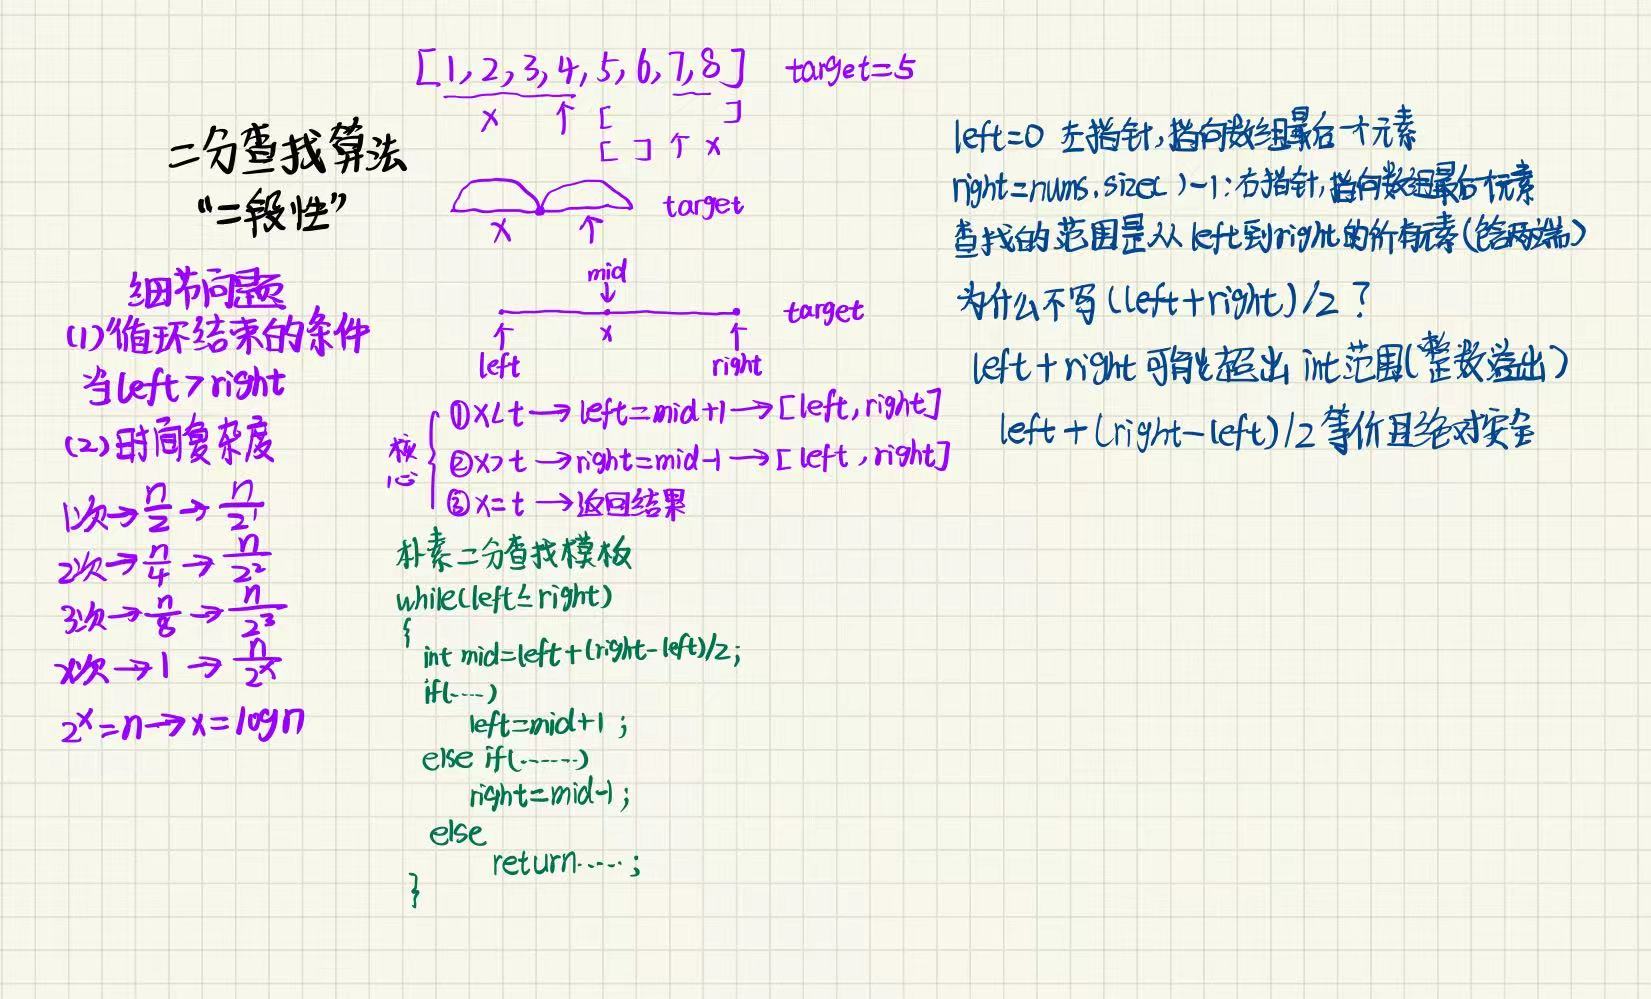 [1,2,3,4,5,6,7,8] target=5
x ↑ [ ]
[ ] ↑ x
二分查找算法
“二段性”
target
x ↑
mid
↓
target
↑ x ↑
left right
细节问题
(1)循环结束的条件
当left>right
(2)时间复杂度
1次→n/2→n/2¹
2次→n/4→n/2²
3次→n/8→n/2³
x次→1→n/2ˣ
2ˣ=n→x=logn
核心
①x<t→left=mid+1→[left,right]
②x>t→right=mid-1→[left,right]
③x=t→返回结果
朴素二分查找模板
while(left≤right)
{
int mid=left+(right-left)/2;
if(....)
left=mid+1;
else if(......)
right=mid-1;
else
return.....;
}
left=0 左指针,指向数组最后一个元素
right=nums.size()-1:右指针,指向数组最后一个元素
查找的范围是从left到right的所有元素(含两端)
为什么不写(left+right)/2?
left+right可能超出int范围(整数溢出)
left+(right-left)/2等价且绝对安全